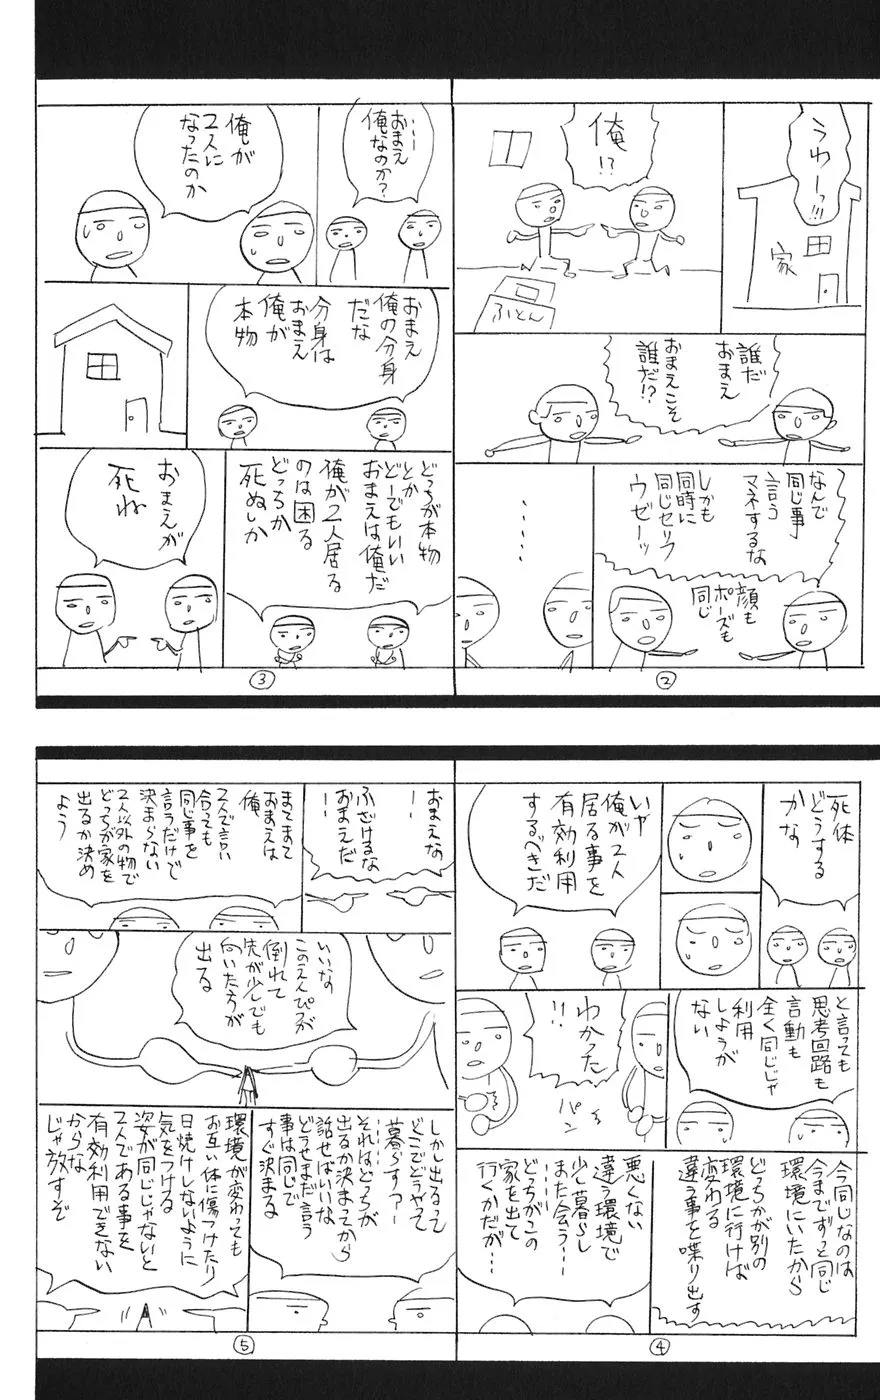 うわーっ!!!
家
俺!?
ふとん
誰だ
おまえ
おまえこそ
誰だ!?
なんで
同じ事
言う
マネするな
しかも
同時に
同じセリフ
ウゼーッ
顔も
ポーズも
同じ
・・・・・
②
・・・・
おまえ
俺なのか?
俺が
2人に
なったのか
おまえ
俺の分身
だな
分身は
おまえ
俺が
本物
どっちが本物
とか
どーでもいい
おまえは俺だ
俺が2人居る
のは困る
どっちか
死ぬしか
おまえが
死ね
③
死体
どうする
かな
いや
俺が2人
居る事を
有効利用
するべきだ
と言っても
思考回路も
言動も
全く同じじゃ
利用
しようが
ない
わかった
!!
パン
今同じなのは
今までずっと同じ
環境にいたから
どっちかが別の
環境に行けば
変わる
違う事を喋り出す
悪くない
違う環境で
少し暮らし
また会う・・・
・・・・・
どっちがこの
家を出て
行くかだが・・・
④
おまえな
ー!
ふざけるな
おまえだ
ー!
まてまて
おまえは
俺
2人で言い
合っても
同じ事を
言うだけで
決まらない
2人以外の物で
どっちが家を
出るか決め
よう
いいな
このえんぴつが
倒れて
先が少しでも
向いた方が
出る
しかし出るって
どこでどうやって
暮らす?ー
・・・・・
それはどっちが
出るか決まってから
話せばいいな
どうせまだ言う
事は同じで
すぐ決まる
環境が変わっても
お互い体に傷つけたり
日焼けしないように
気をつける
姿が同じじゃないと
2人である事を
有効利用できない
からな
じゃ放すぞ
⑤